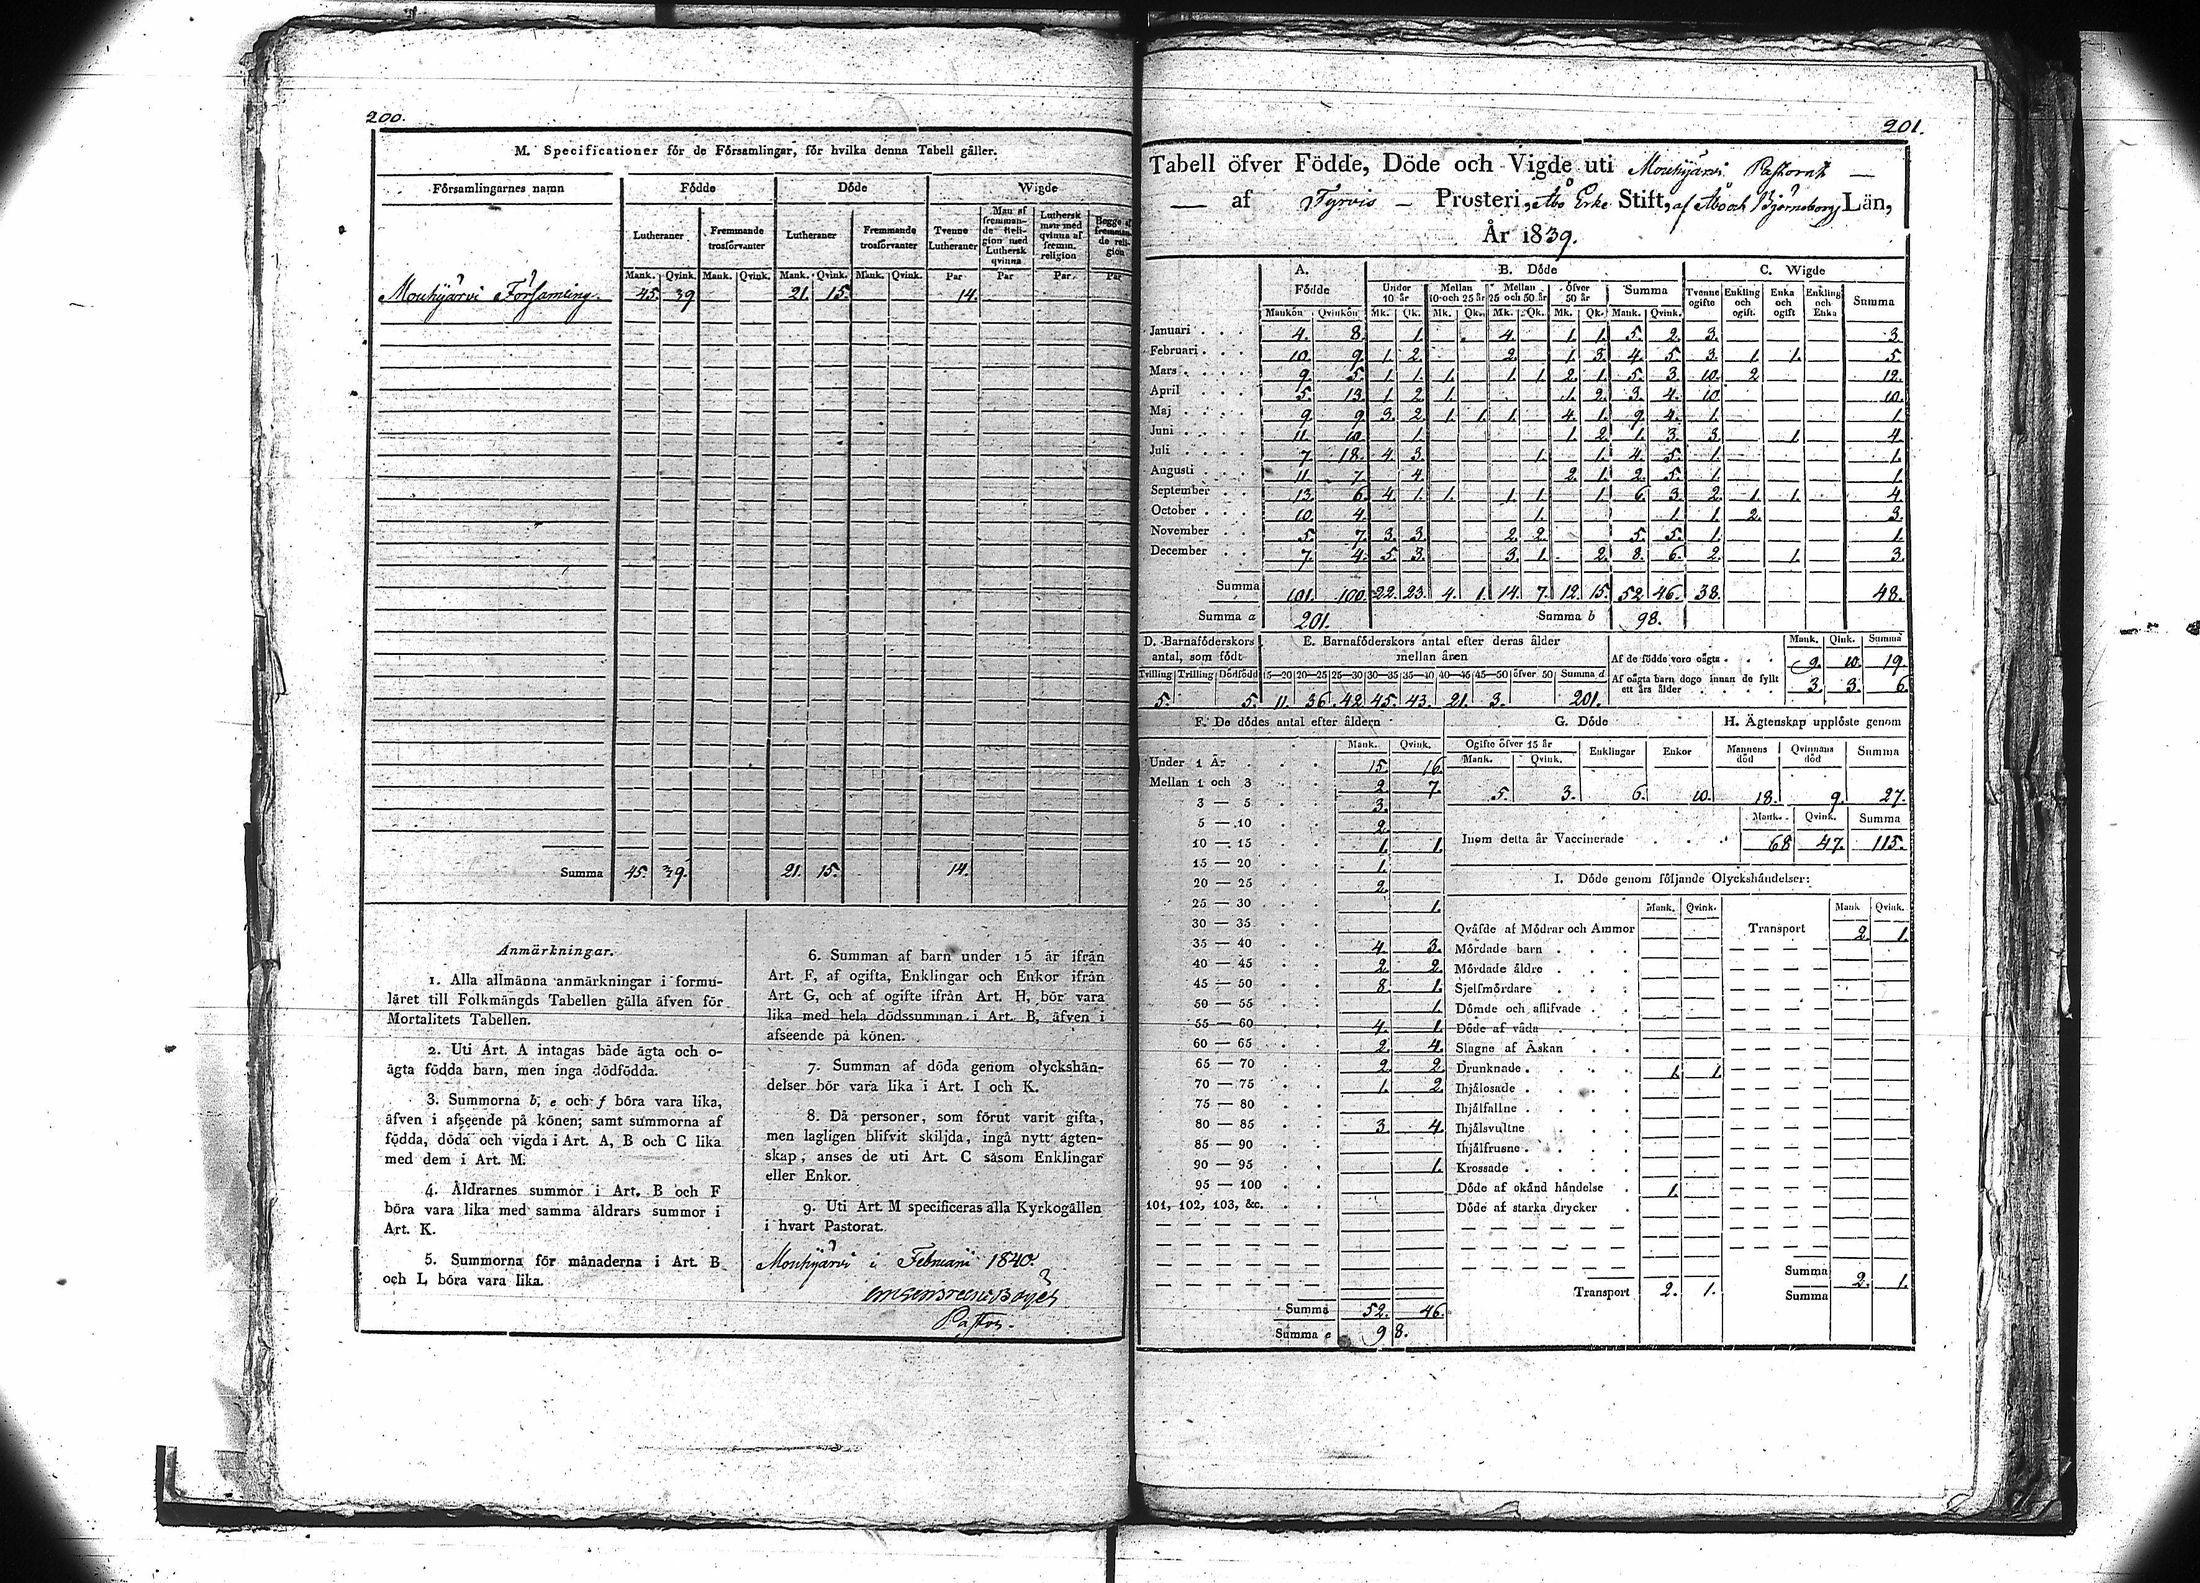 200.
M. Specificationer för de Församlingar, för hvilka denna Tabell gäller.
Församlingarnes namn | Födde | Döde | Wigde
Lutheraner | Fremmande trosförvanter | Lutheraner | Fremmande trosförvanter | Tvenne Lutheraner | Man af fremmande Religion med Luthersk qvinna | Luthersk man med qvinna af fremm. religion | Begge af fremmande religion
Mank. | Qvink. | Mank. | Qvink. | Mank. | Qvink. | Mank. | Qvink. | Par | Par | Par | Par
Mouhijärvi Församling. 45. 39 21. 15. 14.
Summa 45. 39. 21. 15. 14.
Anmärkningar.
1. Alla allmänna anmärkningar i formu-
läret till Folkmängds Tabellen gälla äfven för
Mortalitets Tabellen.
2. Uti Art. A intagas både ägta och o-
ägta födda barn, men inga dödfödda.
3. Summorna b, e och f böra vara lika,
äfven i afseende på könen; samt summorna af
födda, döda och vigda i Art. A, B och C lika
med dem i Art. M.
4. Åldrarnes summor i Art. B och F
böra vara lika med samma åldrars summor i
Art. K.
5. Summorna för månaderna i Art. B
och L böra vara lika.
6. Summan af barn under 15 år ifrån
Art. F, af ogifta, Enklingar och Enkor ifrån
Art. G, och af ogifte ifrån Art. H, bör vara
lika med hela dödssumman i Art. B, äfven i
afseende på könen.
7. Summan af döda genom olyckshän-
delser bör vara lika i Art. I och K.
8. Då personer, som förut varit gifta,
men lagligen blifvit skiljda, ingå nytt ägten-
skap, anses de uti Art. C såsom Enklingar
eller Enkor.
9. Uti Art. M specificeras alla Kyrkogällen
i hvart Pastorat.
Mouhijärvi i Februarii 1840.
Pastor.
201.
Tabell öfver Födde, Döde och Vigde uti Mouhijärvi Pastorat
af Tyrvis Prosteri, Åbo Erke Stift, af Åbo och Björneborgs Län,
År 1839.
A. Födde | B. Döde | C. Wigde
Under 10 år | Mellan 10 och 25 år | Mellan 25 och 50 år | öfver 50 år | Summa | Tvenne ogifte | Enkling och ogift | Enka och ogift | Enkling och Enka | Summa
Mankön | Qvinkön | Mk. | Qk. | Mk. | Qk. | Mk. | Qk. | Mk. | Qk. | Mank. | Qvink.
Januari 4. 8. 1. 4. 1. 1. 5. 2. 3. 3.
Februari 10. 9. 1. 2. 2. 1. 3. 4. 5. 3. 1. 1. 5.
Mars 9. 5. 1. 1. 1. 1. 1. 2. 1. 5. 3. 10. 2. 12.
April 5. 13. 1. 2. 1. 1. 2. 3. 4. 10. 10.
Maj 9. 9. 3. 2. 1. 1. 1. 4. 1. 9. 4. 1. 1.
Juni 11. 10. 1. 1. 2. 1. 3. 3. 1. 4.
Juli 7. 18. 4. 3. 1. 1. 4. 5. 1. 1.
Augusti 11. 7. 4. 2. 1. 2. 5. 1. 1.
September 13. 6. 4. 1. 1. 1. 1. 1. 6. 3. 2. 1. 1. 4.
October 10. 4. 1. 1. 1. 2. 3.
November 5. 7. 3. 3. 2. 2. 5. 5. 1. 1.
December 7. 4. 5. 3. 3. 1. 2. 8. 6. 2. 1. 3.
Summa 101. 100. 22. 23. 4. 1. 14. 7. 12. 15. 52. 46. 38. 48.
Summa a 201. Summa b 98.
D. Barnaföderskors antal, som födt | E. Barnaföderskors antal efter deras ålder mellan åren
Tvilling | Trilling | Dödfödd | 15—20 | 20—25 | 25—30 | 30—35 | 35—40 | 40—45 | 45—50 | öfver 50 | Summa d
5. 5. 11. 36. 42. 45. 43. 21. 3. 201.
Mank. | Qink. | Summa
Af de födde voro oägta 9. 10. 19.
Af oägta barn dogo innan de fyllt ett års ålder 3. 3. 6.
F. De dödes antal efter åldern
Mank. | Qvink.
Under 1 År 15. 16.
Mellan 1 och 3 2. 7.
3 — 5 3.
5 — 10 2.
10 — 15 1. 1.
15 — 20 1.
20 — 25 2.
25 — 30 1.
30 — 35
35 — 40 4. 3.
40 — 45 2. 2.
45 — 50 8. 1.
50 — 55 1.
55 — 60 4. 1.
60 — 65 2. 4.
65 — 70 2. 2.
70 — 75 1. 2.
75 — 80
80 — 85 3. 4.
85 — 90
90 — 95 1.
95 — 100
101, 102, 103, &c.
Summa 52. 46.
Summa e 98.
G. Döde
Ogifte öfver 15 år | Enklingar | Enkor
Mank. | Qvink.
5. 3. 6. 10.
H. Ägtenskap upplöste genom
Mannens död | Qvinnans död | Summa
18. 9. 27.
Mank. | Qvink. | Summa
Inom detta år Vaccinerade 68. 47. 115.
I. Döde genom följande Olyckshändelser:
Mank. | Qvink. | Mank | Qvink.
Qväfde af Mödrar och Ammor
Mördade barn
Mördade äldre
Sjelfmördare
Dömde och aflifvade
Döde af våda
Slagne af Åskan
Drunknade 1. 1.
Ihjälosade
Ihjälfallne
Ihjälsvultne
Ihjälfrusne
Krossade
Döde af okänd händelse 1.
Döde af starka drycker
Transport 2. 1.
Transport 2. 1.
Summa 2. 1.
Summa